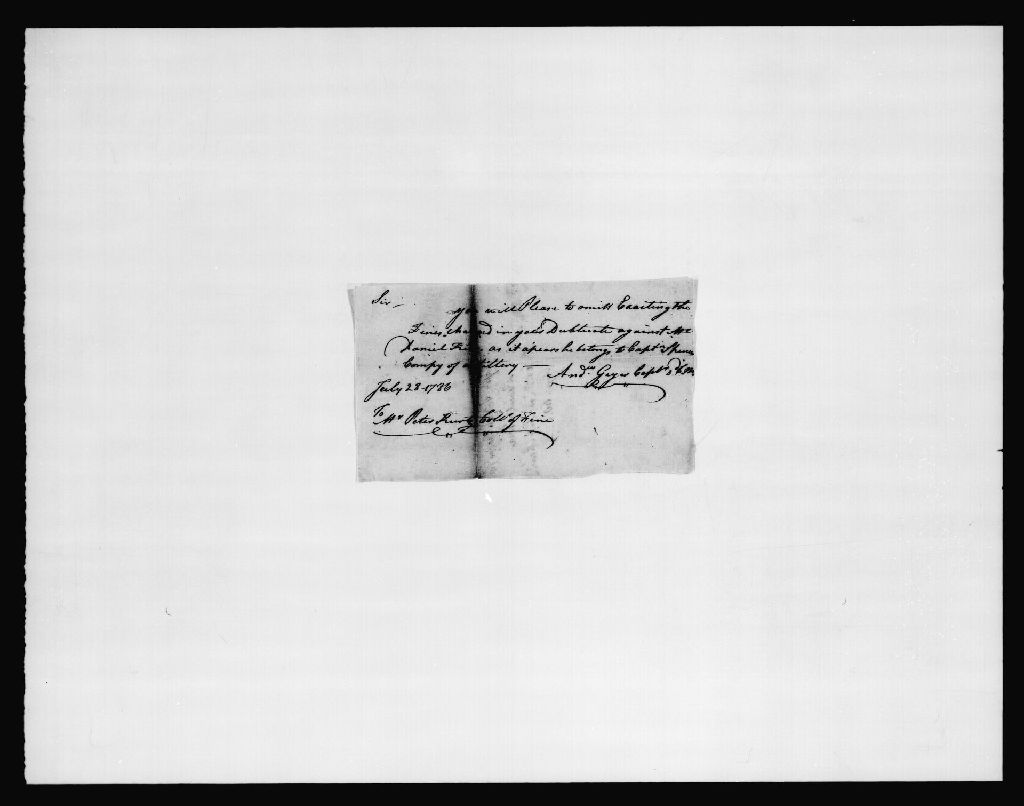 Sir
you will Please to omitt Exacting the
Fines charged in your Dublicate against Mr
Daniel as it apears he belongs to Capt
Compy of artillery
Andw Geyer Capt
July 23 1783
To Mr Peter Collr of Fine